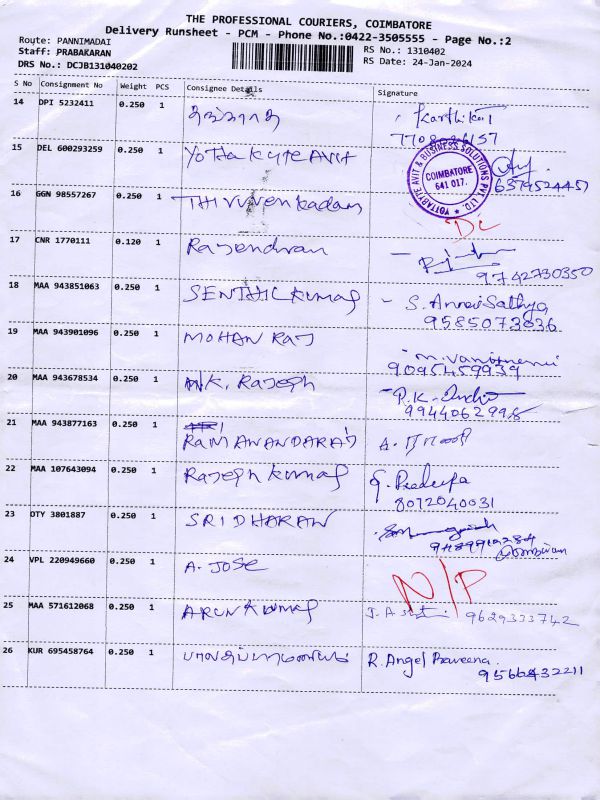 THE PROFESSIONAL COURIERS, COIMBATORE
Delivery Runsheet - PCM - Phone No.:0422-3505555 - Page No.:2
Route: PANNIMADAI
Staff: PRABAKARAN
RS No.: 1310402
DRS No.: DCJB131040202
RS Date: 24-Jan-2024
S No Consignment No Weight PCS Consignee Details Signature
14 DPI 5232411 0.250 1
15 DEL 600293259 0.250 1 Yotta Kyte Avit
YOTTABYTE AVIT & BUSINESS SOLUTIONS PVT. LTD.
COIMBATORE
641 017.
16 GGN 98557267 0.250 1 THIRUVenkadam
DC
17 CNR 1770111 0.120 1 Rajendran
9742730350
18 MAA 943851063 0.250 1 SENTHIL KUMAR - S. Annai Sathya
9585073036
19 MAA 943901096 0.250 1 MOHAN RAJ
9095459939
20 MAA 943678534 0.250 1 K. Rajesh P.K.
21 MAA 943877163 0.250 1 RAMANANDARAJ
22 MAA 107643094 0.250 1 Rajesh Kumar G. Pradeepa
8072040031
23 OTY 3801887 0.250 1 SRIDHARAN
24 VPL 220949660 0.250 1 A. JOSE N/P
25 MAA 571612068 0.250 1 ARUN KUMAR 9629333742
26 KUR 695458764 0.250 1 R. Angel Praveena
9566432211